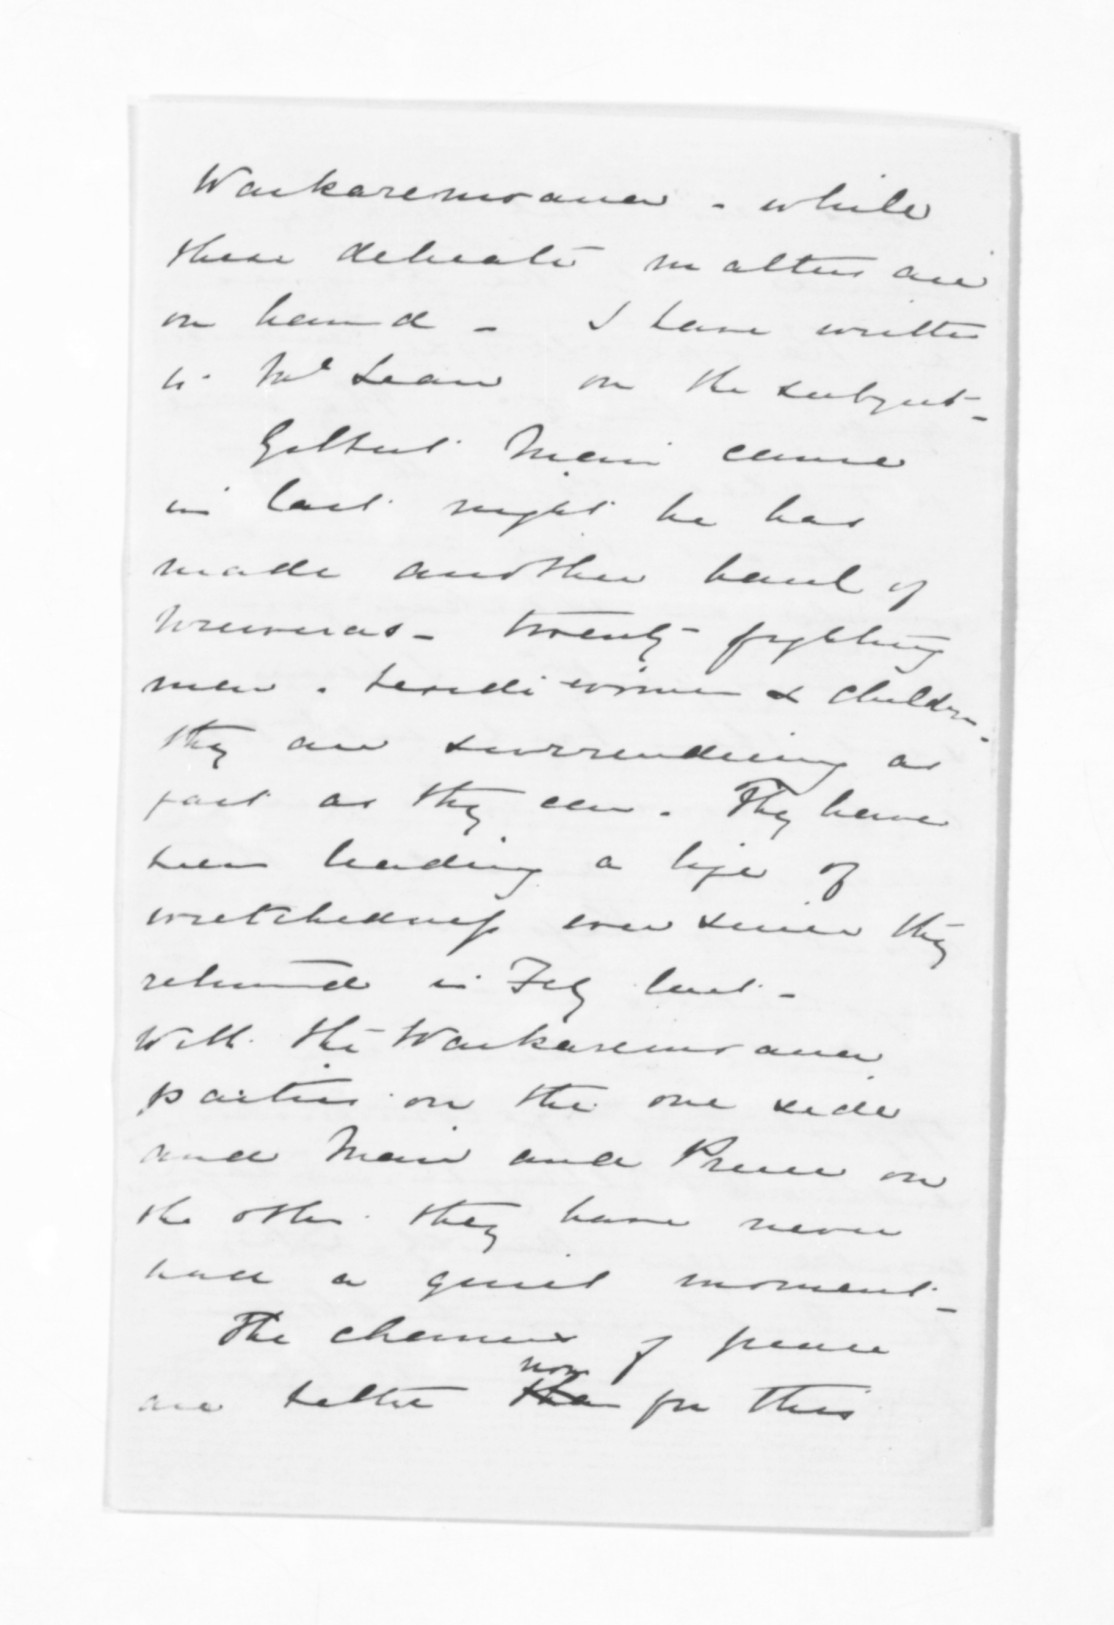 Waikaremoana - while
these delicate matters are
on hand - I have written
to Mc Lean on the subject -
Gilbert Mair came
in last night he has
made another haul of
Ureweras - twenty fighting
men . beside women & children .
they are surrendering as
fast as they can . They have
been leading a life of
wretchedness ever since they
returned in Feby last -
With the Waikaremoana
parties on the one side
and Mair and Preece on
the other they have never
had a quiet moment -
The chances of peace
are better now for this